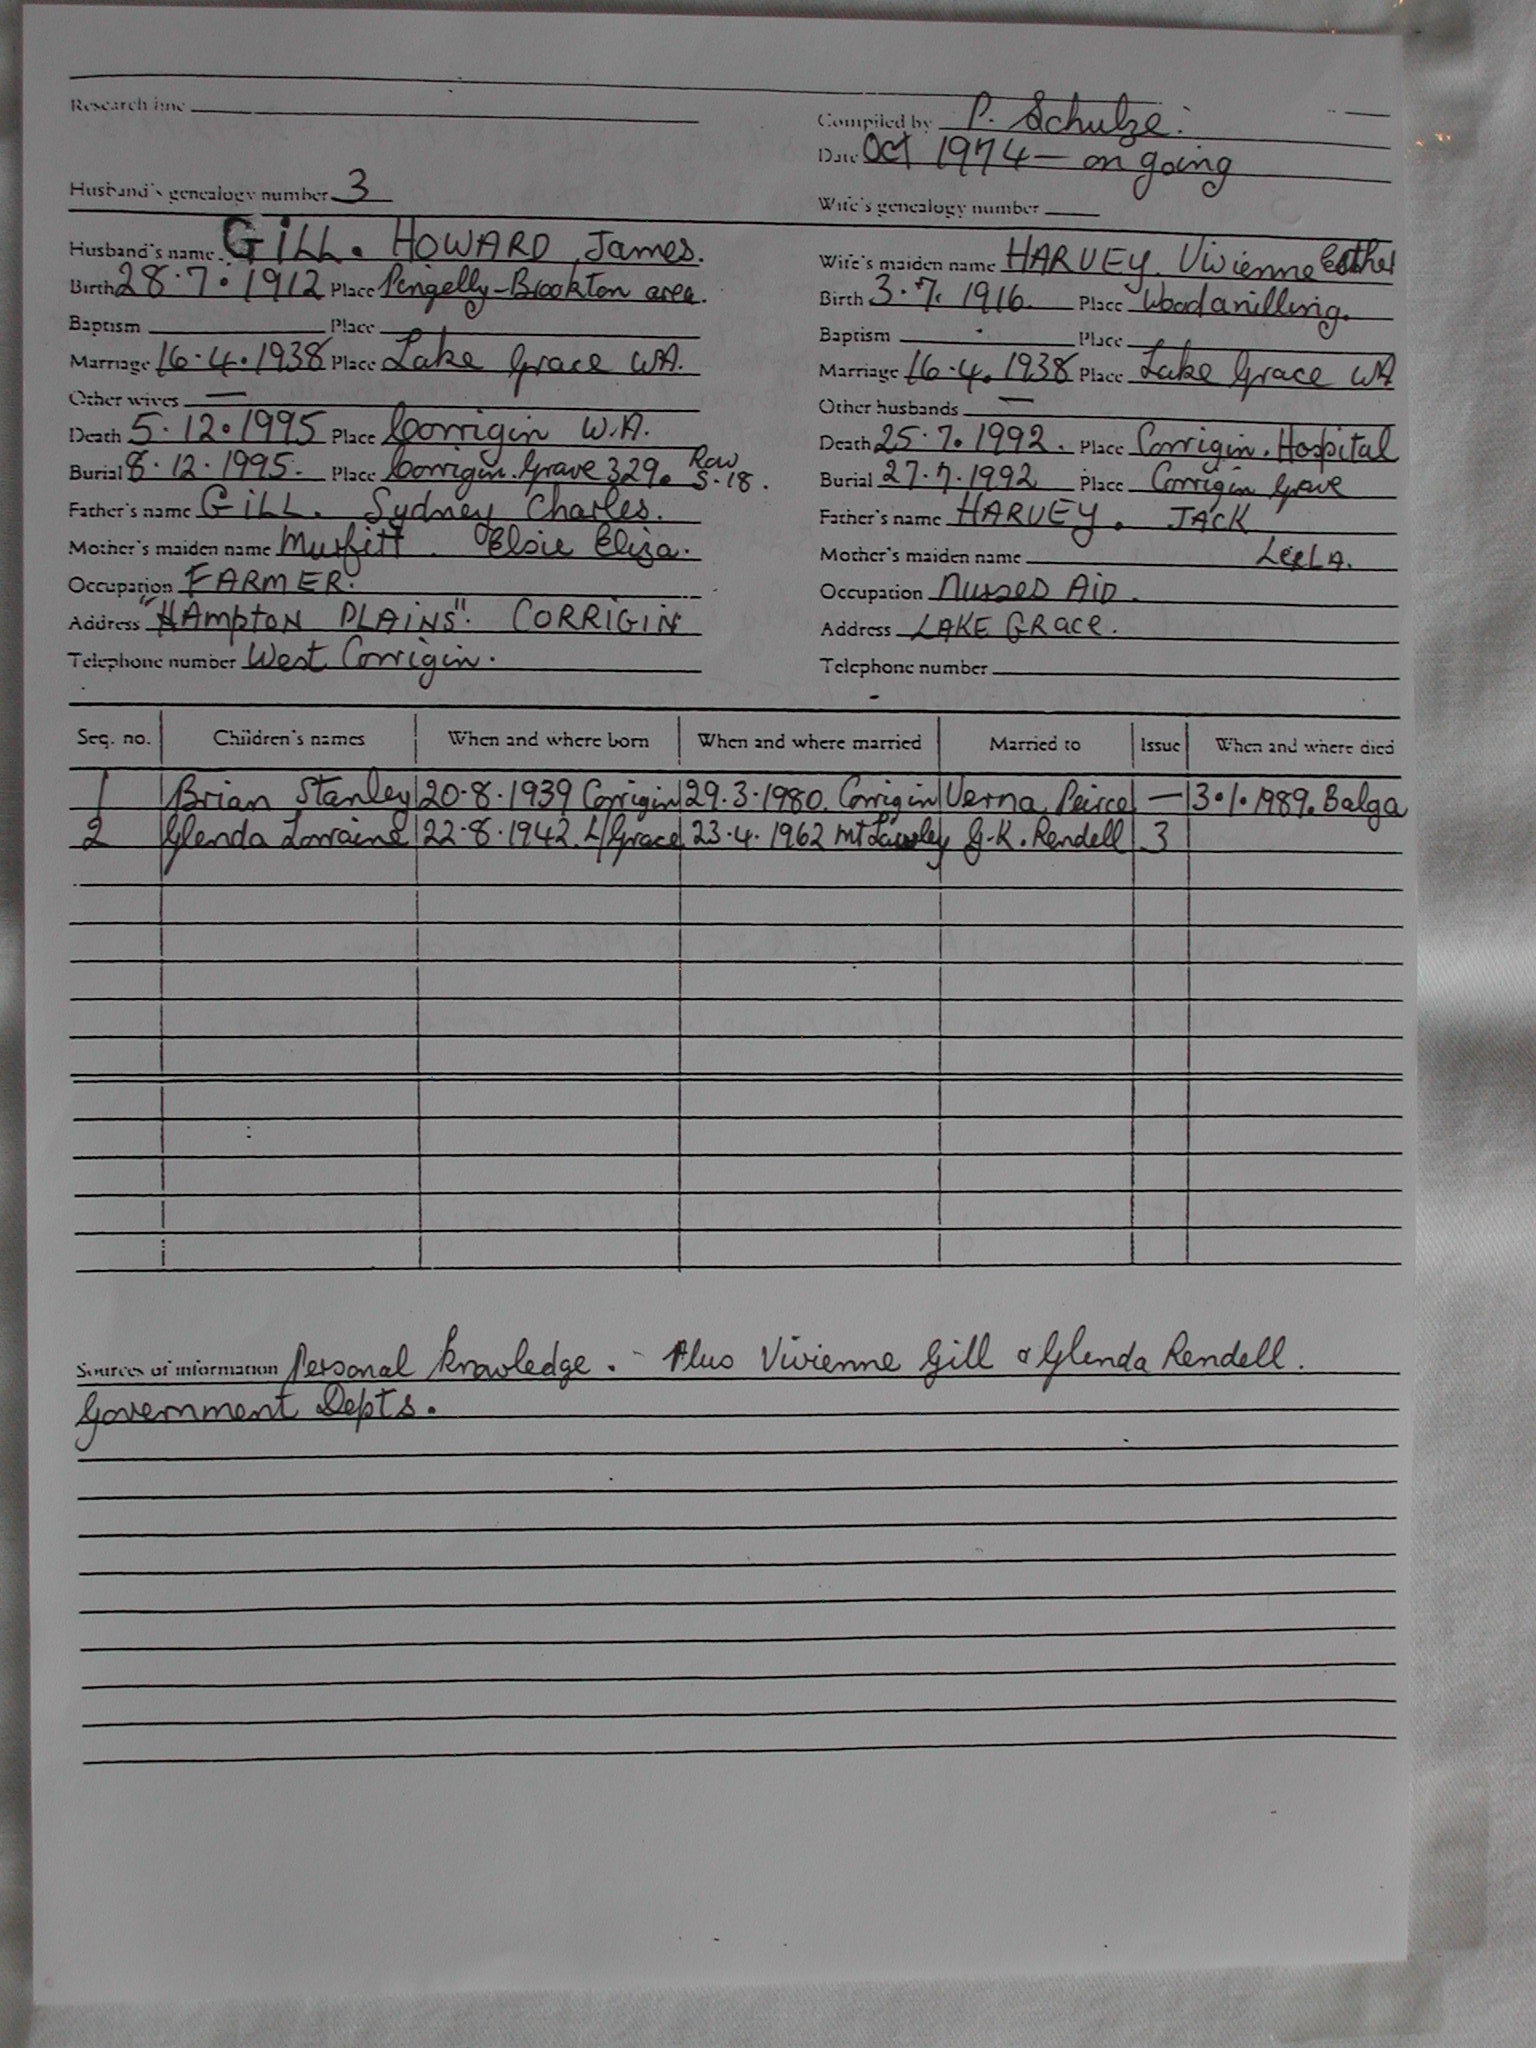 Research line
Compiled by P. Schulze.
Date Oct 1974 - on going
Husband's genealogy number 3
Wife's genealogy number
Husband's name GILL. HOWARD James.
Wife's maiden name HARVEY. Vivienne Esther
Birth 28.7.1912 Place Pingelly-Brookton area.
Birth 3.7.1916. Place Woodanilling.
Baptism Place
Baptism Place
Marriage 16.4.1938 Place Lake Grace WA.
Marriage 16.4.1938 Place Lake Grace WA
Other wives —
Other husbands —
Death 5.12.1995 Place Corrigin W.A.
Death 25.7.1992. Place Corrigin. Hospital
Burial 8.12.1995. Place Corrigin. Grave 329. Row S.18.
Burial 27.7.1992 Place Corrigin Grave
Father's name GILL. Sydney Charles.
Father's name HARVEY. JACK
Mother's maiden name Murfitt. Elsie Eliza.
Mother's maiden name
Occupation FARMER.
Occupation Nurses AID.
Address "HAmpton PLAINS". CORRIGIN
Address LAKE GRACE.
Telephone number West Corrigin.
Telephone number
Seq. no. Children's names When and where born When and where married Married to Issue When and where died
1 Brian Stanley 20.8.1939 Corrigin 29.3.1980. Corrigin Verna Peirce — 13.1.1989. Balga
2 Glenda Lorraine 22.8.1942. L/Grace 23.4.1962 Mt Lawley G.K. Rendell 3
Sources of information Personal knowledge. - Plus Vivienne Gill & Glenda Rendell.
Government Depts.